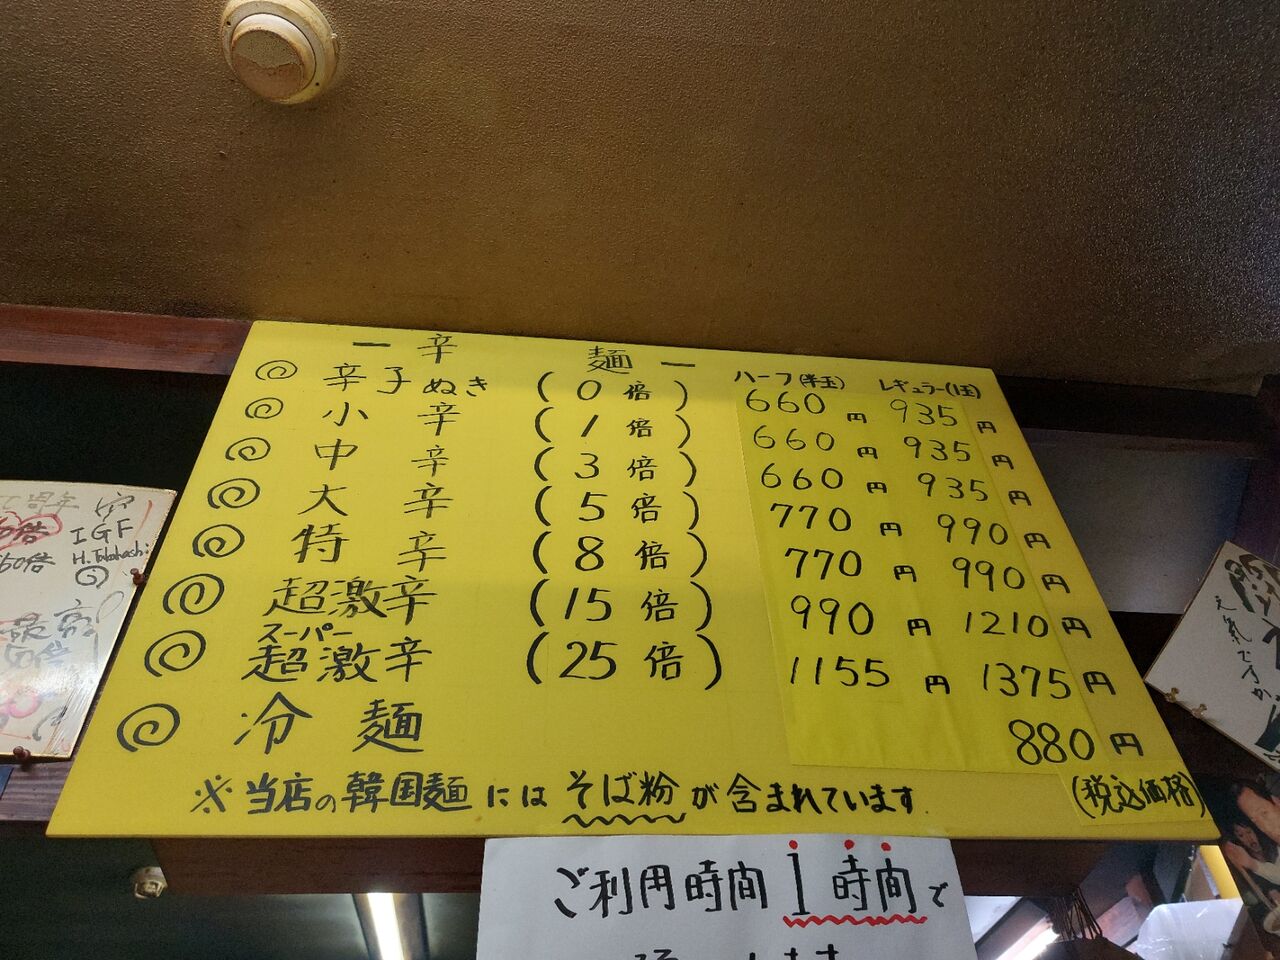 ー辛 麺ー
ハーフ(半玉) レギュラー(1玉)
辛子ぬき (0倍) 660円 935円
小辛 (1倍) 660円 935円
中辛 (3倍) 660円 935円
大辛 (5倍) 770円 990円
特辛 (8倍) 770円 990円
超激辛 (15倍) 990円 1210円
スーパー
超激辛 (25倍) 1155円 1375円
冷麺 880円
(税込価格)
※当店の韓国麺にはそば粉が含まれています
ご利用時間1時間で
周年
IGF
H.Takahashi
50倍
元気ですか